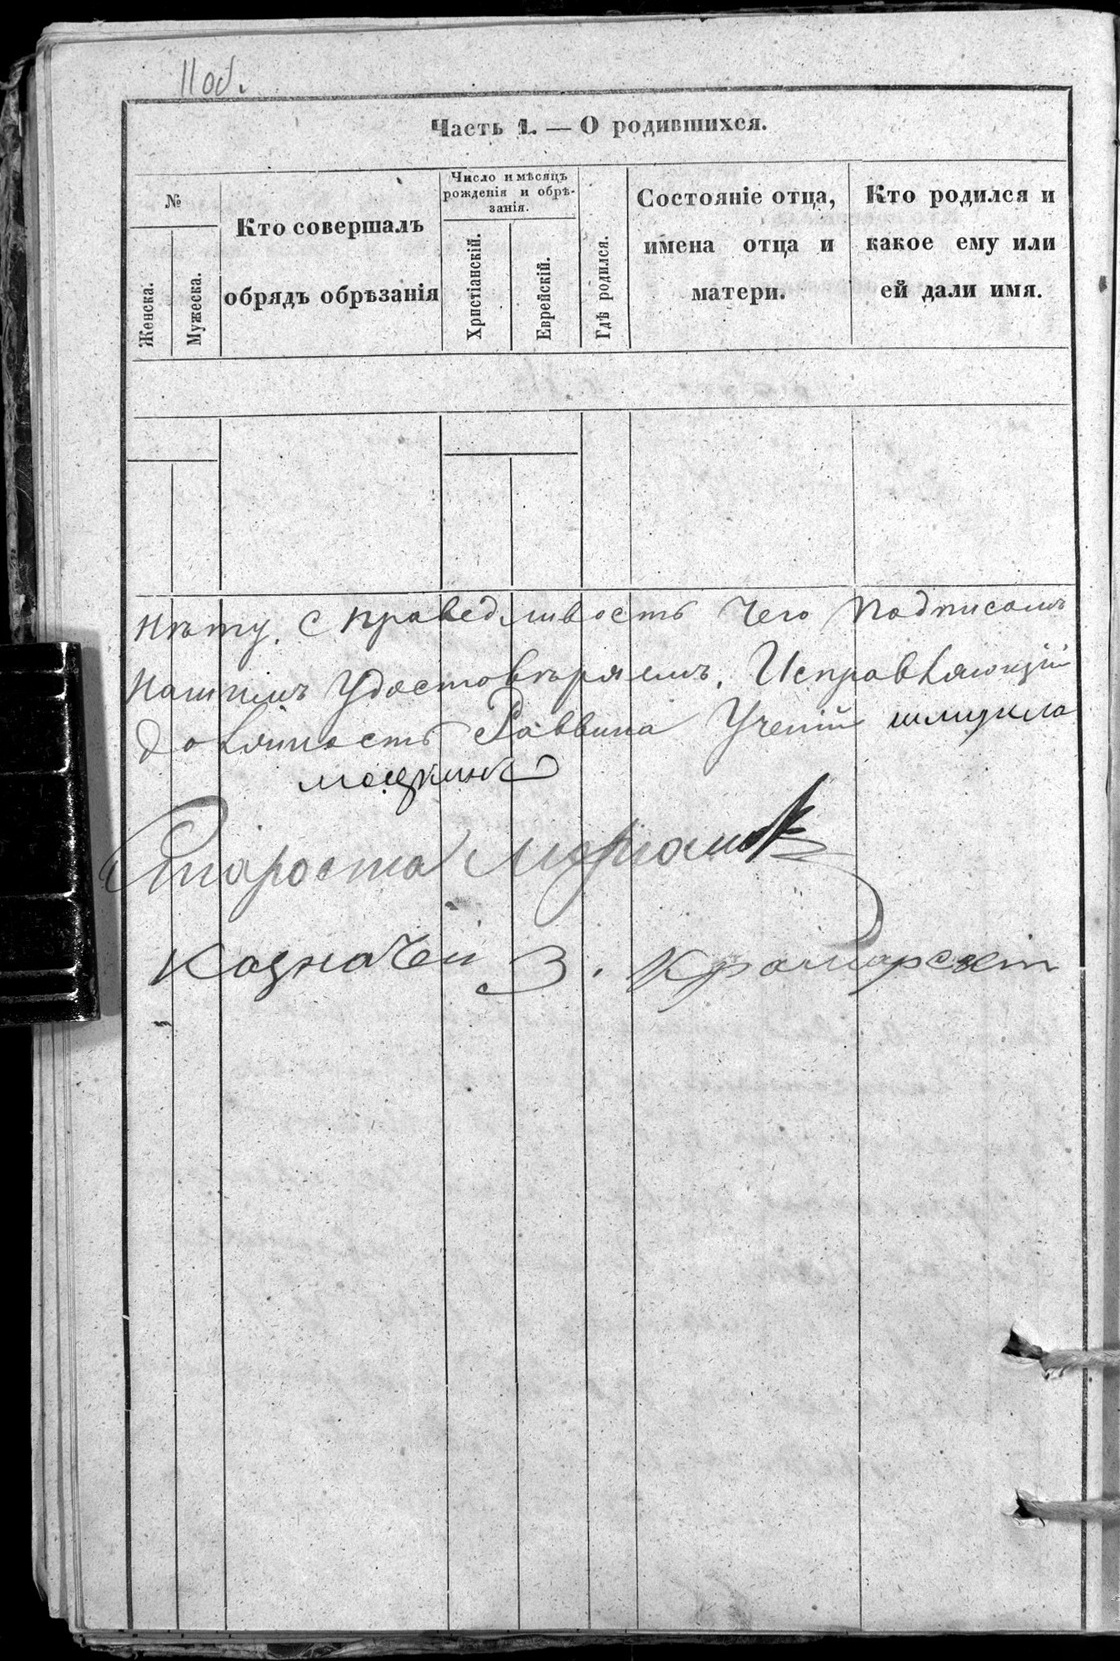 11 об.
Часть 1. — О родившихся.
№
Женска.
Мужеска.
Кто совершалъ
обрядъ обрѣзанія
Число и мѣсяцъ
рожденія и обрѣ-
занія.
Христіанскій.
Еврейскій.
Гдѣ родился.
Состояніе отца,
имена отца и
матери.
Кто родился и
какое ему или
ей дали имя.
нѣту. Справедливость чего подписомъ
нашимъ удостовѣряемъ. Исправляющій
должность Раввина Ученій
Староста
Казначей З.